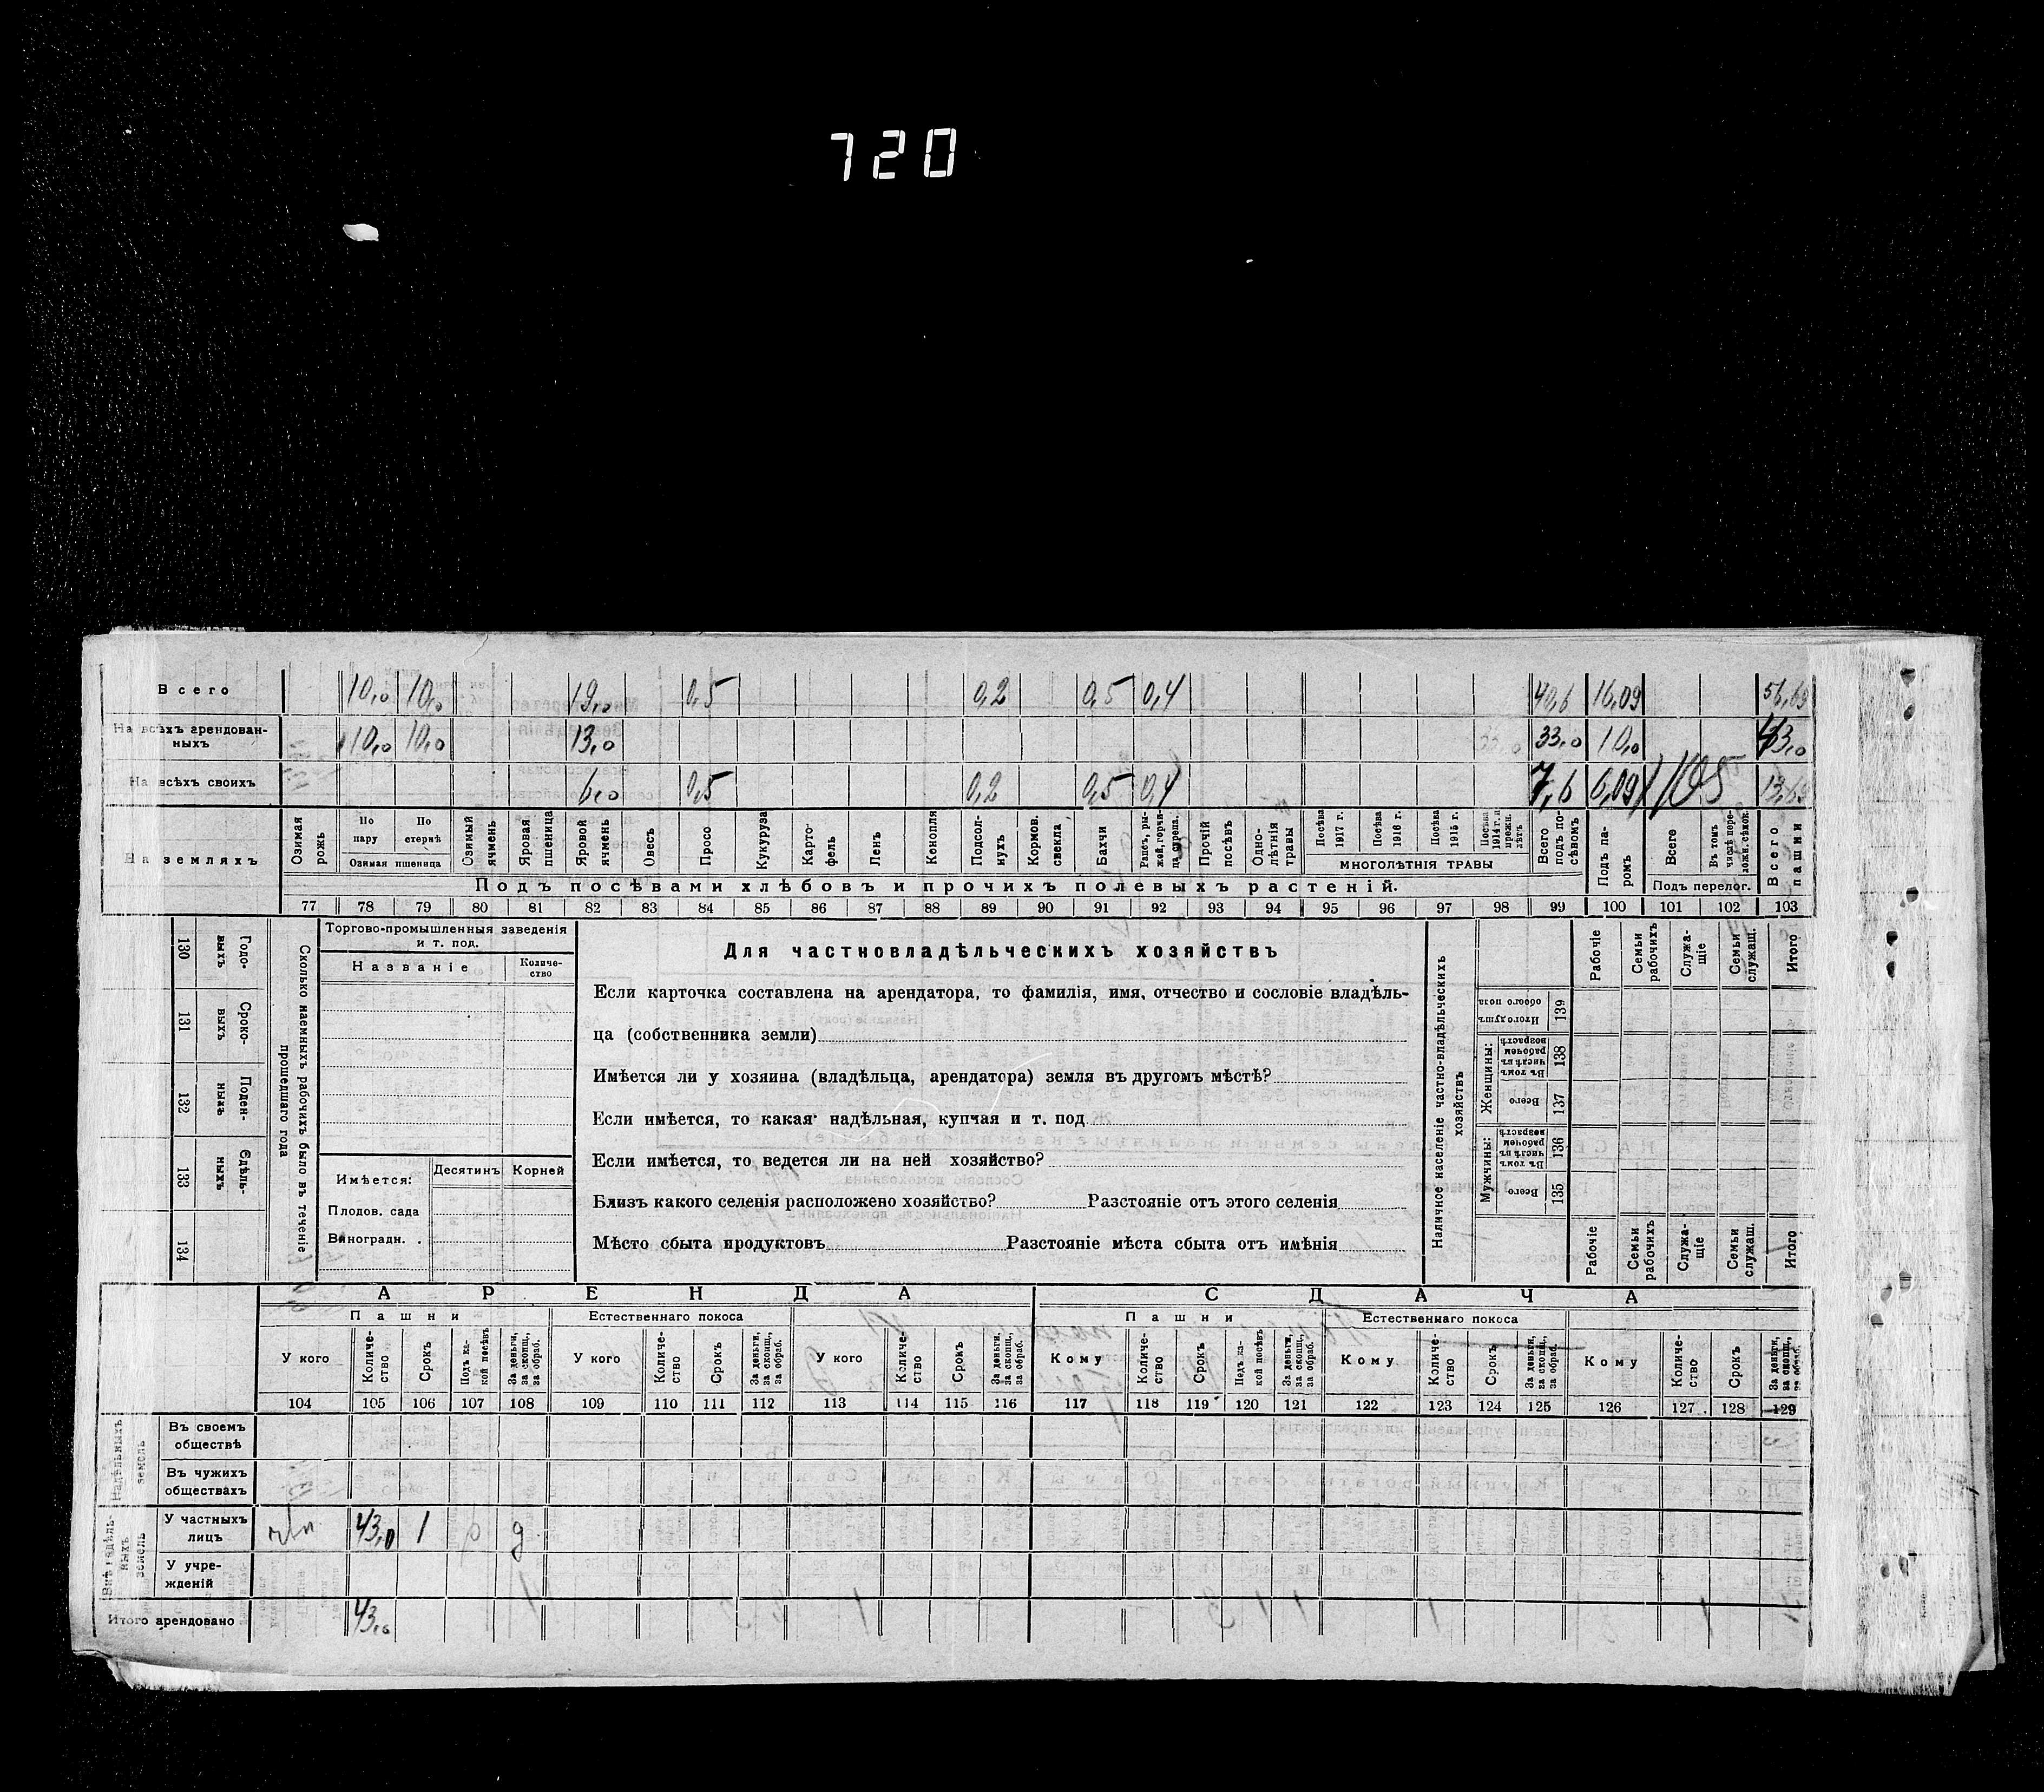 720
Всего 10,0 10,0 19,0 0,5 0,2 0,5 0,4 40,6 16,09 56,69
На всѣхъ арендован-ныхъ 10,0 10,0 13,0 33,0 10,0 43,0
На всѣхъ своихъ 6,0 0,5 0,2 0,5 0,4 7,6 6,09 105 13,69
На земляхъ
Озимая рожь
По пару
По стернѣ
Озимая пшеница
Озимый ячмень
Яровая пшеница
Яровой ячмень
Овесъ
Просо
Кукуруза
Карто-фель
Ленъ
Конопля
Подсол-нухъ
Кормов. свекла
Бахчи
Рапсъ, ры-жей, горчи-ца, сурепа.
Прочій посѣвъ
Одно-лѣтнія травы
Посѣва 1917 г.
Посѣва 1916 г.
Посѣва 1915 г.
Посѣва 1914 г. и прежн. лѣтъ
МНОГОЛѢТНІЯ ТРАВЫ
Всего подъ по-сѣвомъ
Подъ па-ромъ
Всего
Въ томъ числѣ пере-ложн. сѣнок.
Подъ перелог.
Всего пашни
Подъ посѣвами хлѣбовъ и прочихъ полевыхъ растеній.
77 78 79 80 81 82 83 84 85 86 87 88 89 90 91 92 93 94 95 96 97 98 99 100 101 102 103
130 Годо-выхъ
131 Сроко-выхъ
132 Поден-ныхъ
133 Сдѣль-ныхъ
134
Сколько наемныхъ рабочихъ было въ теченіе прошедшаго года
Торгово-промышленныя заведенія
и т. под.
Названіе
Количе-ство
Имѣется:
Десятинъ Корней
Плодов. сада
Виноградн.
Для частновладѣльческихъ хозяйствъ
Если карточка составлена на арендатора, то фамилія, имя, отчество и сословіе владѣль-
ца (собственника земли)
Имѣется ли у хозяина (владѣльца, арендатора) земля въ другомъ мѣстѣ?
Если имѣется, то какая надѣльная, купчая и т. под
Если имѣется, то ведется ли на ней хозяйство?
Близъ какого селенія расположено хозяйство? Разстояніе отъ этого селенія
Мѣсто сбыта продуктовъ Разстояніе мѣста сбыта отъ имѣнія
Наличное населеніе частно-владѣльческихъ хозяйствъ
Рабочіе
Семьи рабочихъ
Служа-щіе
Семьи служащ.
Итого
139 Итого душъ обоего пола
Женщины:
138 Въ томъ числѣ въ рабочемъ возрастѣ
137 Всего
Мужчины:
136 Въ томъ числѣ въ рабочемъ возрастѣ
135 Всего
Рабочіе
Семьи рабочихъ
Служа-щіе
Семьи служащ.
Итого
АРЕНДА
СДАЧА
Пашни
Естественнаго покоса
Пашни
Естественнаго покоса
У кого
Количе-ство
Срокъ
Подъ ка-кой посѣвъ
За деньги, за скопщ., за обраб.
У кого
Количе-ство
Срокъ
За деньги, за скопщ., за обраб.
У кого
Количе-ство
Срокъ
За деньги, за скопщ., за обраб.
Кому
Количе-ство
Срокъ
Подъ ка-кой посѣвъ
За деньги, за скопщ., за обраб.
Кому
Количе-ство
Срокъ
За деньги, за скопщ., за обраб.
Кому
Количе-ство
Срокъ
За деньги, за скопщ., за обраб.
104 105 106 107 108 109 110 111 112 113 114 115 116 117 118 119 120 121 122 123 124 125 126 127 128 129
Надѣльныхъ земель
Въ своемъ обществѣ
Въ чужихъ обществахъ
Внѣ надѣль-ныхъ земель
У частныхъ лицъ 43,0 1 р д
У учре-жденій
Итого арендовано 43,0